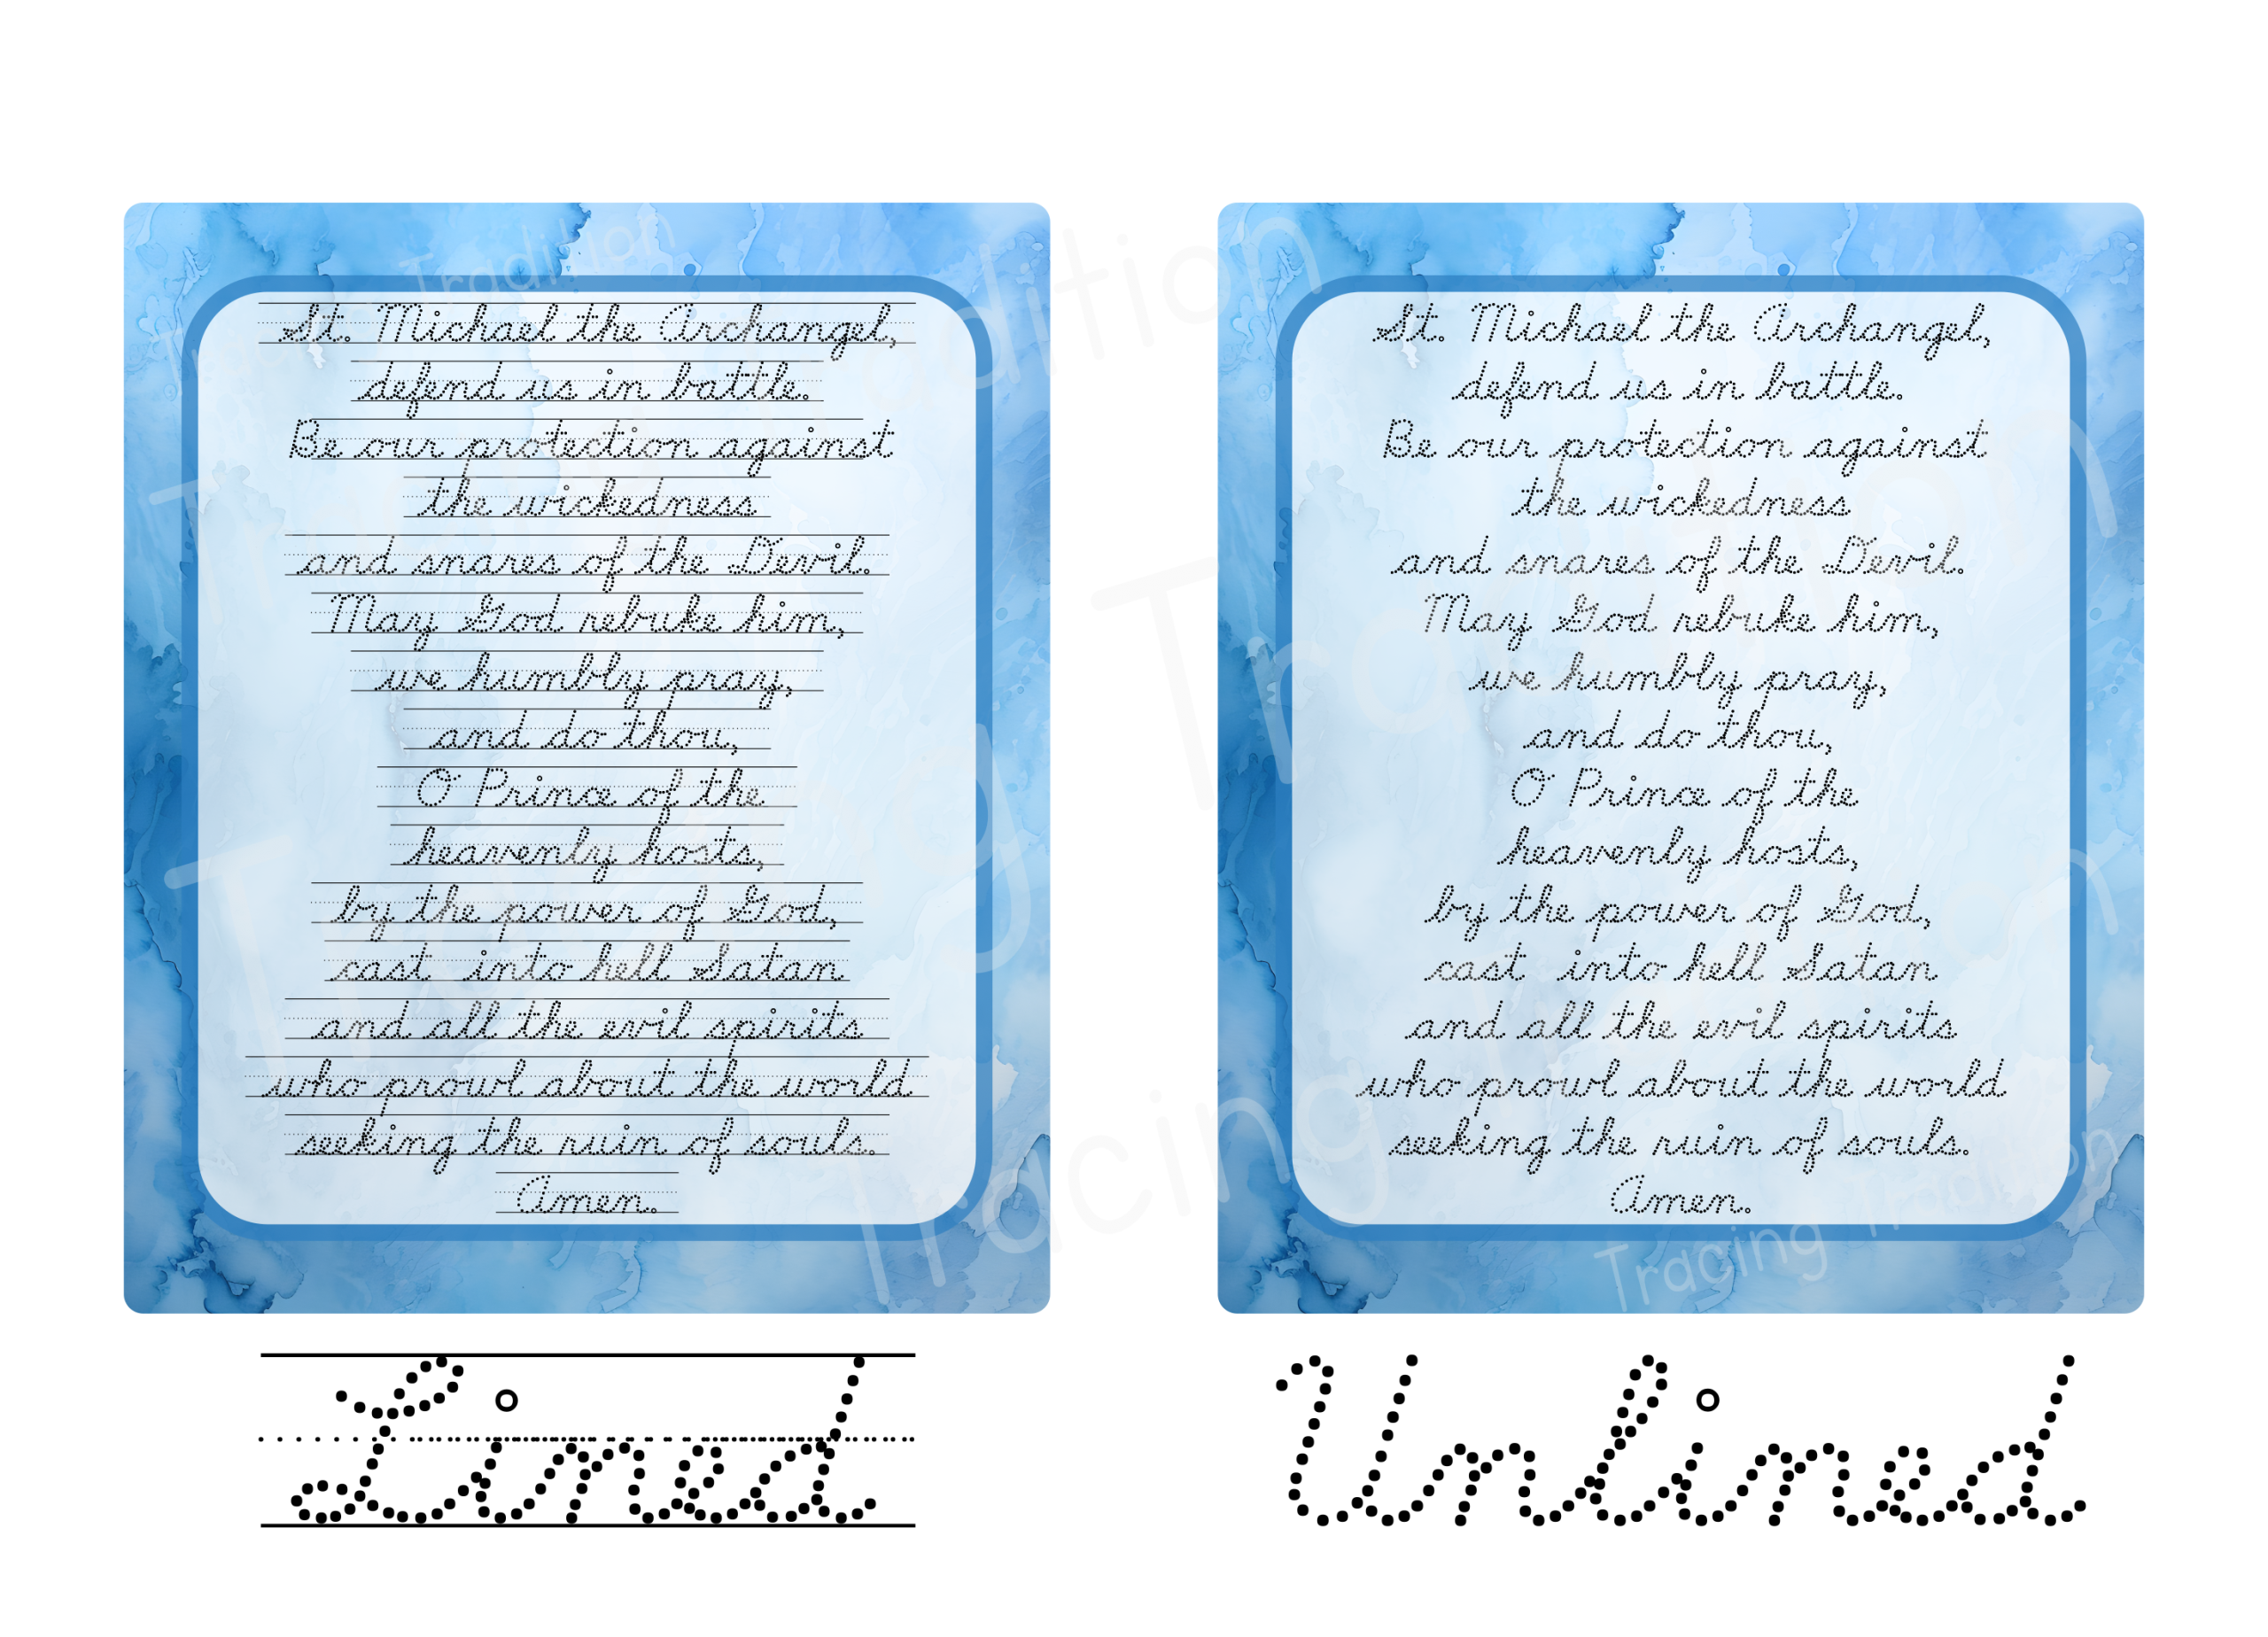 St. Michael the Archangel,
defend us in battle.
Be our protection against
the wickedness
and snares of the Devil.
May God rebuke him,
we humbly pray,
and do thou,
O Prince of the
heavenly hosts,
by the power of God,
cast into hell Satan
and all the evil spirits
who prowl about the world
seeking the ruin of souls.
Amen.
Lined
St. Michael the Archangel,
defend us in battle.
Be our protection against
the wickedness
and snares of the Devil.
May God rebuke him,
we humbly pray,
and do thou,
O Prince of the
heavenly hosts,
by the power of God,
cast into hell Satan
and all the evil spirits
who prowl about the world
seeking the ruin of souls.
Amen.
Unlined
Tracing Tradition